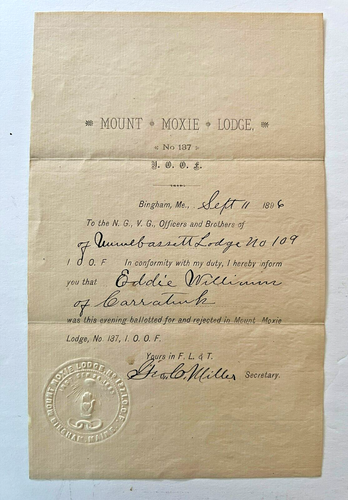 MOUNT * MOXIE * LODGE,
« No 137 »
I. O. O. F.
Bingham, Me., Sept 11 1896
To the N. G., V. G., Officers and Brothers of
of Lodge No 109
I O O F In conformity with my duty, I hereby inform
you that Eddie Williams
of Carratunk
was this evening ballotted for and rejected in Mount, Moxie
Lodge, No. 137, I. O. O. F.
Yours in F., L. & T.
Geo. C. Miller Secretary.
MOUNT MOXIE LODGE No 137 I.O.O.F.
BINGHAM, MAINE